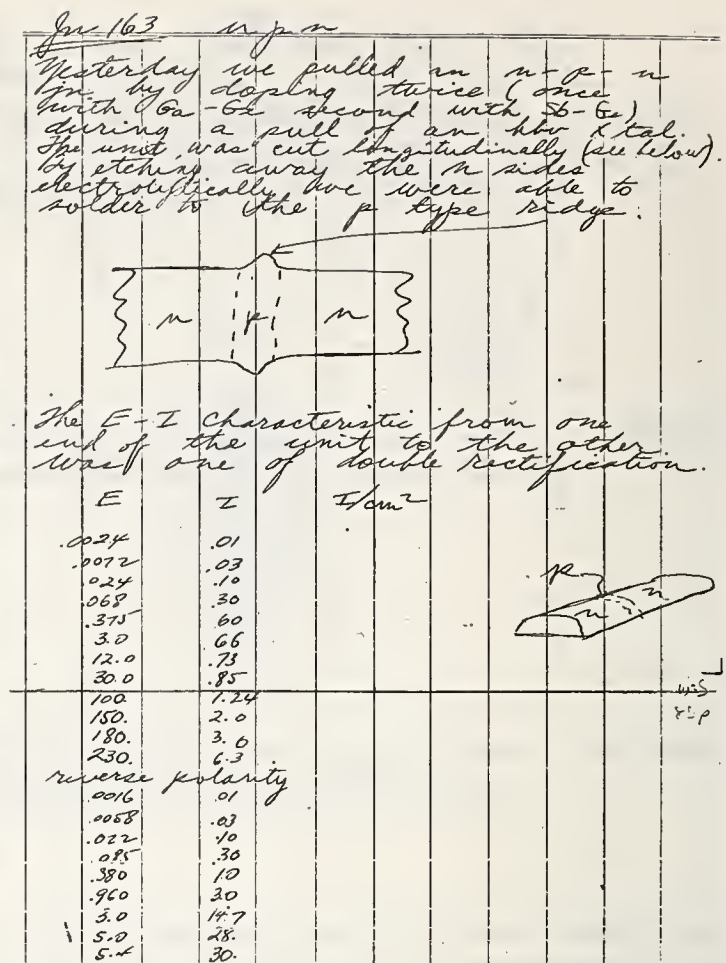 163 n p n
Yesterday we pulled an n-p-n
in by doping twice (once
with Ga-Ge second with Sb-Ge)
during a pull of an hbv xtal.
The unit was cut longitudinally (see below).
By etching away the n sides
electrolytically we were able to
solder to the p type ridge.
n p n
The E-I characteristic from one
end of the unit to the other
was one of double rectification.
E I I/cm2
.0024 .01
.0072 .03
.024 .10
.068 .30
.375 .60
3.0 .66
12.0 .73
30.0 .85
100. 1.24
150. 2.0
180. 3.0
230. 6.3
p n n
reverse polarity
.0016 .01
.0058 .03
.022 .10
.085 .30
.380 1.0
.960 3.0
3.0 14.7
5.0 28.
5.4 30.